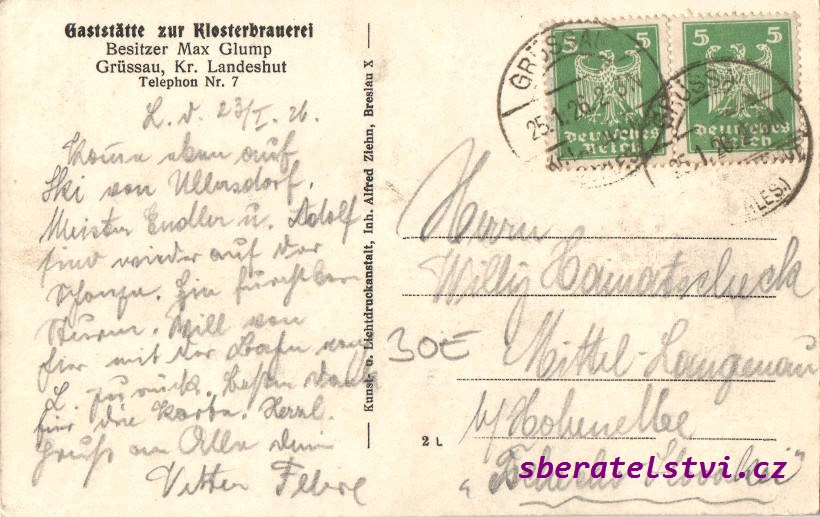 Gaststätte zur Klosterbrauerei
Besitzer Max Glump
Grüssau, Kr. Landeshut
Telephon Nr. 7
L. d. 23/I. 26.
Komme eben auf
Ski von Ullersdorf.
Meister Endler u. Adolf
sind wieder auf der
Schanze. Ein furchtbarer
Sturm. Will von
hier mit der Bahn nach
L zurück. Besten Dank
für die Karte. Herzl.
Gruß an Alle dein
Vetter
Kunst- u. Lichtdruckanstalt, Inh. Alfred Ziehn, Breslau X
2 L
5 5
Deutsches
Reich
5 5
Deutsches
Reich
GRÜSSAU
25.1.26
GRÜSSAU
25.1.26
Herrn
Willy Hamatscheck
30E
Mittel-Langenau
b/Hohenelbe
sberatelstvi.cz